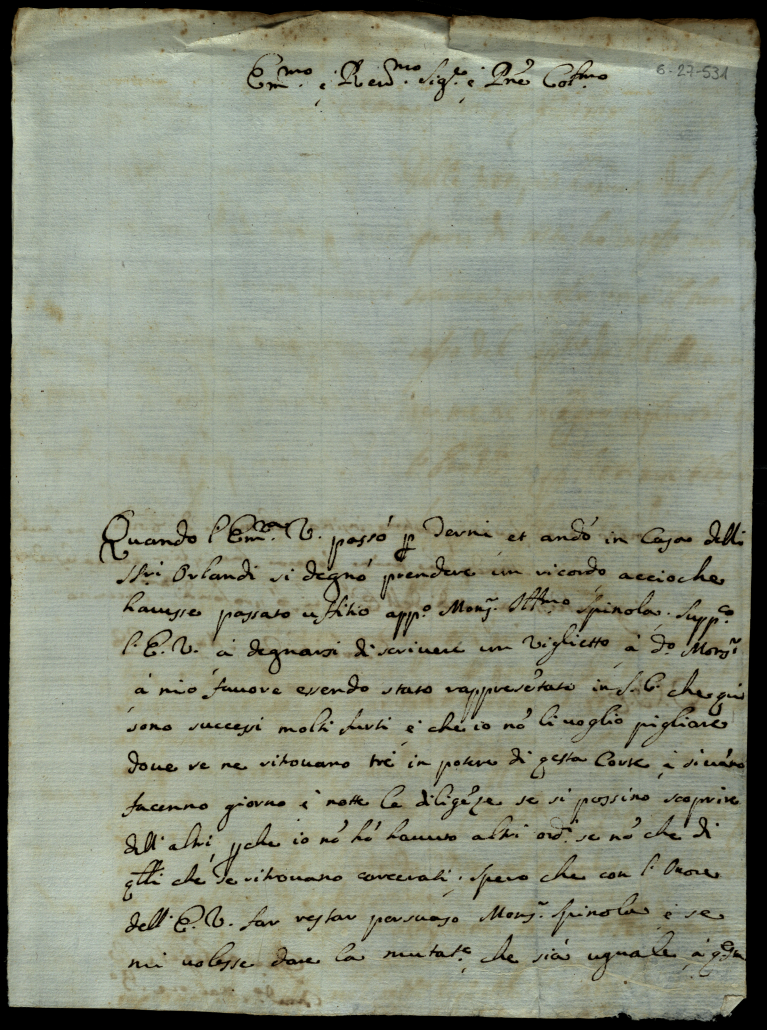 Em.mo e Rev.mo Sig.e e Prne Col.mo
6-27-531
Quando l'Em.a V. passò p Terni et andò in Casa delli
SS.ri Orlandi si degnò prendere un ricordo accioche
havesse passato uffitio app.o Mons.r Ill.mo Spinola. Supp.co
l'E. V. à degnarsi di scrivere un viglietto à d.o Mons.r
à mio favore essendo stato rappresẽtato in S. C. che qui
sono successi molti furti e che io nõ li voglio pigliare
dove ve ne ritovano trè in potere di qesta Corte e si vãno
facenno giorno e notte le diligẽze se si possino scoprire
dell'altri, pche io nõ hò havuto altri ord.i se nõ che di
qlli che se ritovano carcerati. Spero che con l'Onore
dell'E. V. far restar persuaso Mons.r Spinola e se
mi volesse dare la mutat.e che sia uguale à qsta